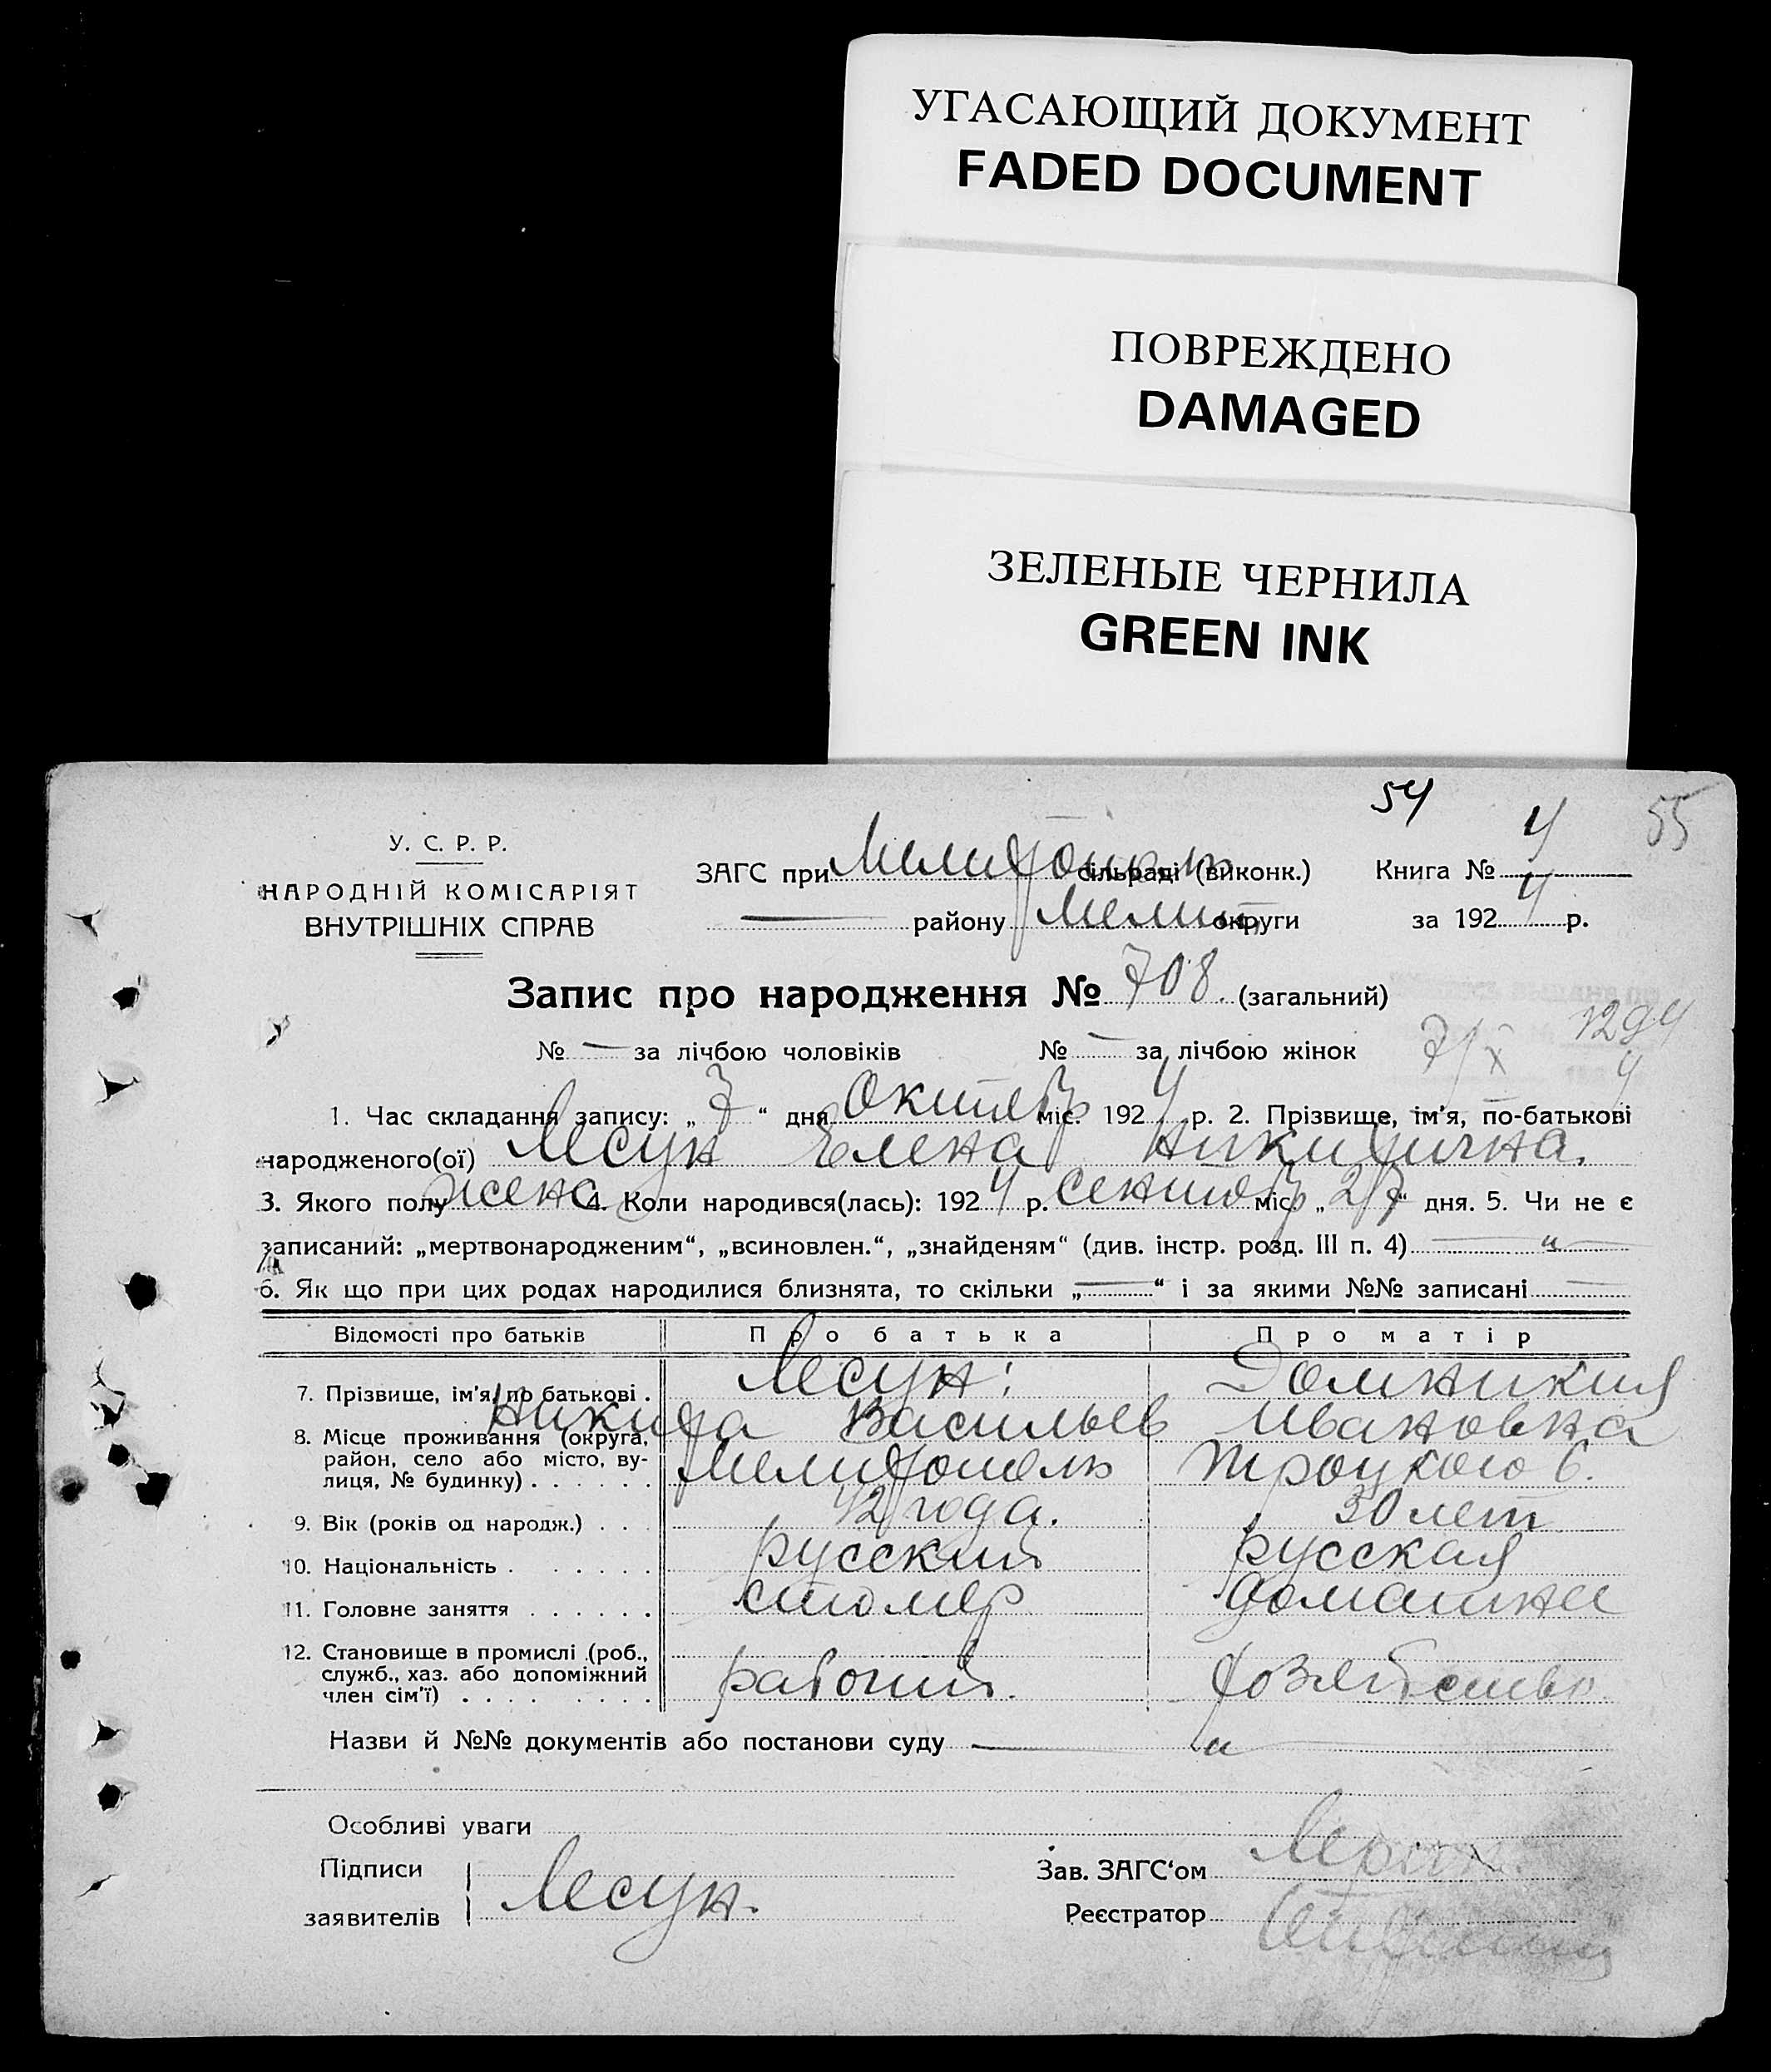 УГАСАЮЩИЙ ДОКУМЕНТ
FADED DOCUMENT
ПОВРЕЖДЕНО
DAMAGED
ЗЕЛЕНЫЕ ЧЕРНИЛА
GREEN INK
54
55
У. С. Р. Р.
НАРОДНІЙ КОМІСАРІЯТ
ВНУТРІШНІХ СПРАВ
ЗАГС при Мелитополь сільраді (виконк.) Книга № 4
району Мелит. округи за 1924 р.
Запис про народження № 708. (загальний)
№ — за лічбою чоловіків № — за лічбою жінок
7/X 1294
4
1. Час складання запису: „7“ дня Октябр міс. 1924 р. 2. Прізвище, ім'я, по-батькові
народженого(ої) Лесун Елена Никитична.
3. Якого полу женс 4. Коли народився(лась): 1924 р. сентябр міс. „27“ дня. 5. Чи не є
записаний: „мертвонародженим“, „всиновлен.“, „знайденям“ (див. інстр. розд. III п. 4) — „ —
6. Як що при цих родах народилися близнята, то скільки „—“ і за якими №№ записані —
Відомості про батьків Про батька Про матір
7. Прізвище, ім'я, по батькові . Лесун: Домникия
Никита Васильев Ивановна
8. Місце проживання (округа, район, село або місто, ву-
лиця, № будинку) . . . . . . Мелитополь Троцкого 6.
9. Вік (років од народж.) . . . 42 года. 30 лет
10. Національність . . . . . . русский русская
11. Головне заняття . . . . . . столяр домашнее
12. Становище в промислі (роб.,
служб., хаз. або допоміжний
член сім'ї) . . . . . . . . . рабочий. хозяйство
Назви й №№ документів або постанови суду — „ —
Особливі уваги
Підписи
заявителів Лесун.
Зав. ЗАГС'ом
Реєстратор